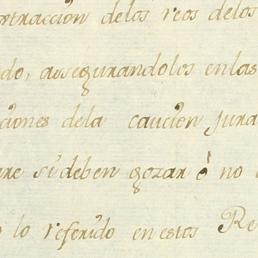 ontraccion delos reos delos
do, assegurandolos enlas
ciones dela caucion jura
re si deben gozar è no
lo referido en estos Re